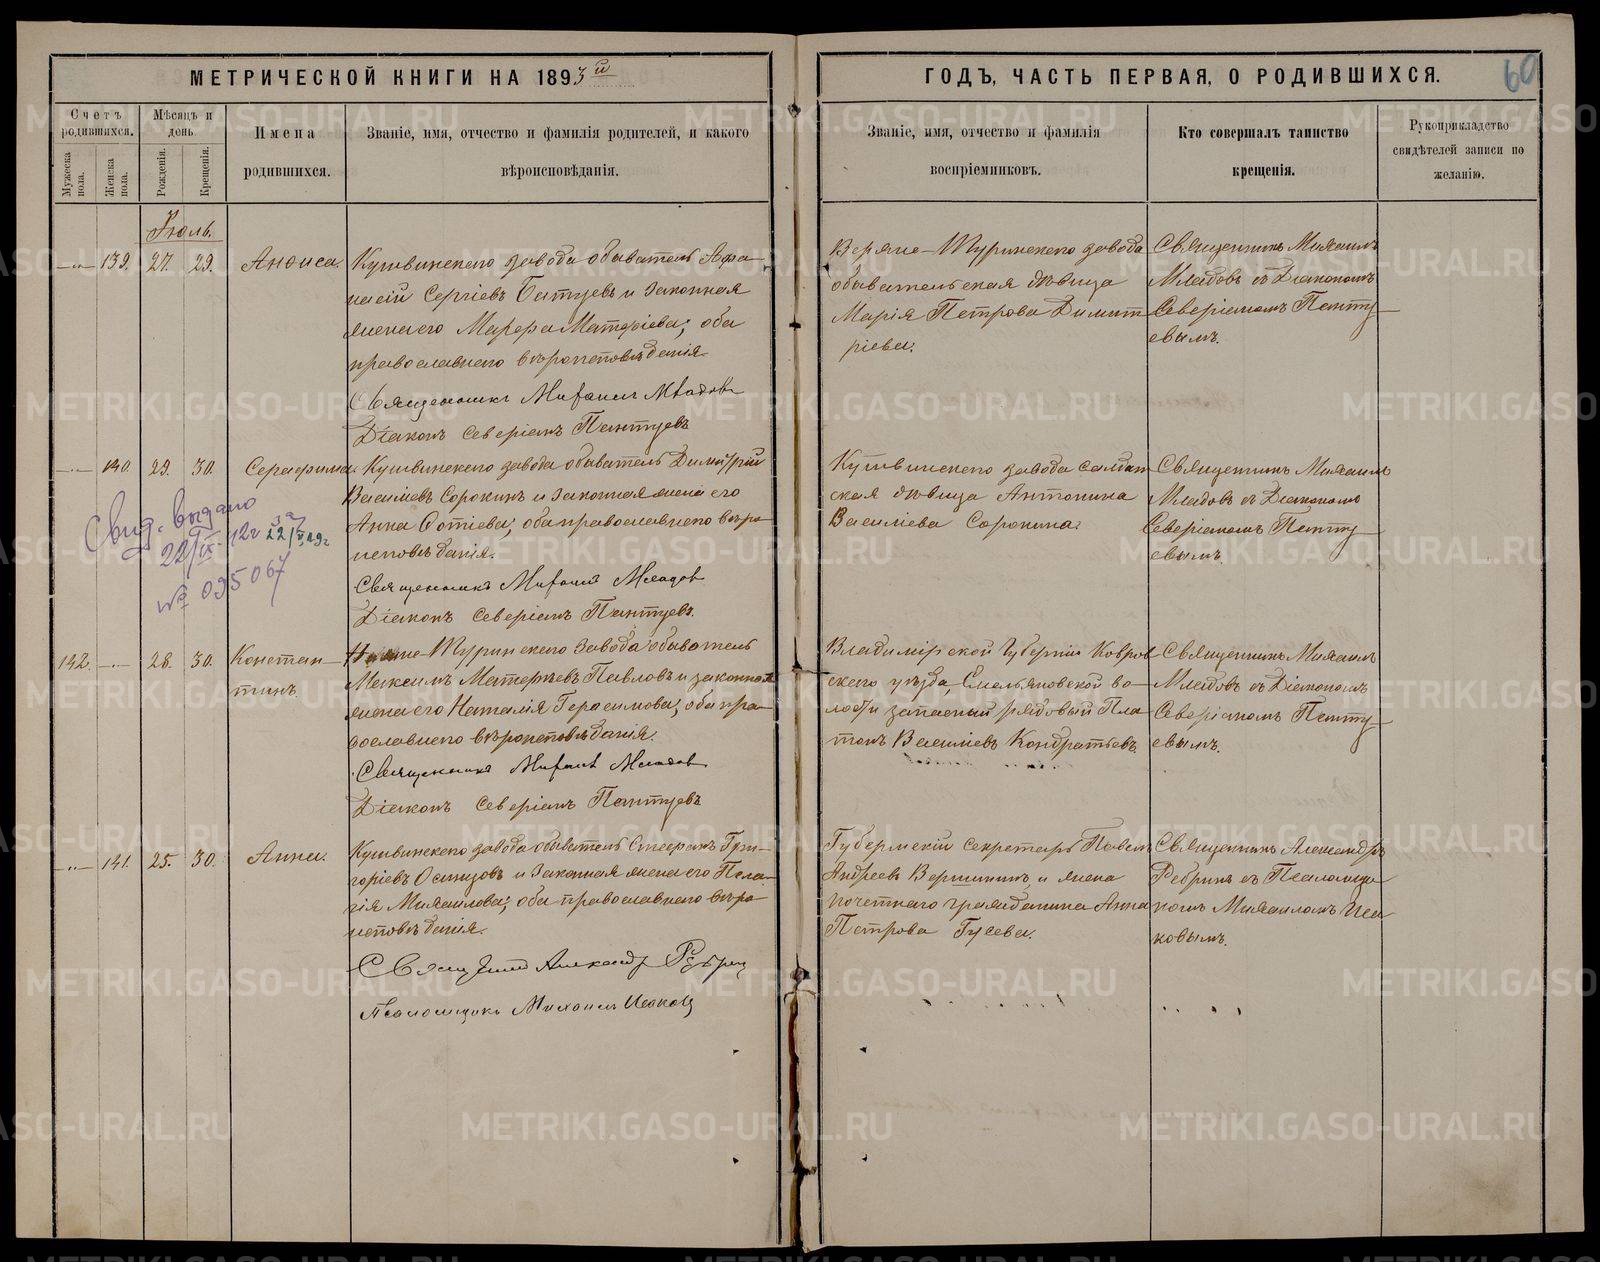 МЕТРИЧЕСКОЙ КНИГИ НА 1893 й
ГОДЪ, ЧАСТЬ ПЕРВАЯ, О РОДИВШИХСЯ.
60
Счетъ родившихся.
Мужеска пола.
Женска пола.
Мѣсяцъ и день
Рожденія.
Крещенія.
Имена
родившихся.
Званіе, имя, отчество и фамилія родителей, и какого
вѣроисповѣданія.
Званіе, имя, отчество и фамилія
воспріемниковъ.
Кто совершалъ таинство
крещенія.
Рукоприкладство
свидѣтелей записи по
желанію.
Іюль.
139. 27. 29. Анѳиса.
Кушвинскаго завода обыватель Афа-
насій Сергіевъ и законная
жена его Марѳа Матѳіева; оба
православнаго вѣроисповѣданія.
Священникъ Михаилъ Младовъ
Діаконъ Северіанъ Пантуевъ
Верхне-Туринскаго завода
обывательская дѣвица
Марія Петрова Димит-
ріева.
Священникъ Михаилъ
Младовъ съ Діакономъ
Северіаномъ Панту-
евымъ.
140. 29. 30. Серафима.
Кушвинскаго завода обыватель Димитрій
Васильевъ Сорокинъ и законная жена его
Анна Фотіева; оба православнаго вѣро-
исповѣданія.
Священникъ Михаилъ Младов
Діаконъ Северіанъ Пантуевъ.
Кушвинскаго завода солдат-
ская дѣвица Антонина
Васильева Сорокина.
Священникъ Михаилъ
Младовъ съ Діакономъ
Северіаномъ Панту-
евымъ.
Свид. выдано
22/IX 12г
№ 095067
142. 28. 30. Констан-
тинъ.
Туринскаго завода обыватель
Максимъ Матѳіевъ Павловъ и законная
жена его Наталія Герасимова; оба пра-
вославнаго вѣроисповѣданія.
Священникъ Михаилъ Младов
Діаконъ Северіанъ Пантуевъ
Владимірской Губерніи Ковров-
скаго уѣзда, Емельяновской во-
лости запасный рядовый Пла-
тонъ Васильевъ Кондратьевъ.
Священникъ Михаилъ
Младовъ съ Діакономъ
Северіаномъ Панту-
евымъ.
141. 25. 30. Анна.
Кушвинскаго завода обыватель Стефанъ Гри-
горіевъ Осинцовъ и законная жена его Пела-
гія Михаилова; оба православнаго вѣро-
исповѣданія.
Священникъ Александр Ребрин
Псаломщикъ Михаилъ Исаковъ
Губернскій Секретарь Павелъ
Андреевъ Вершининъ и жена
почетнаго гражданина Анна
Петрова Гусева.
Священникъ Александръ
Ребринъ съ Псаломщи-
комъ Михаиломъ Иса-
ковымъ.
METRIKI.GASO-URAL.RU